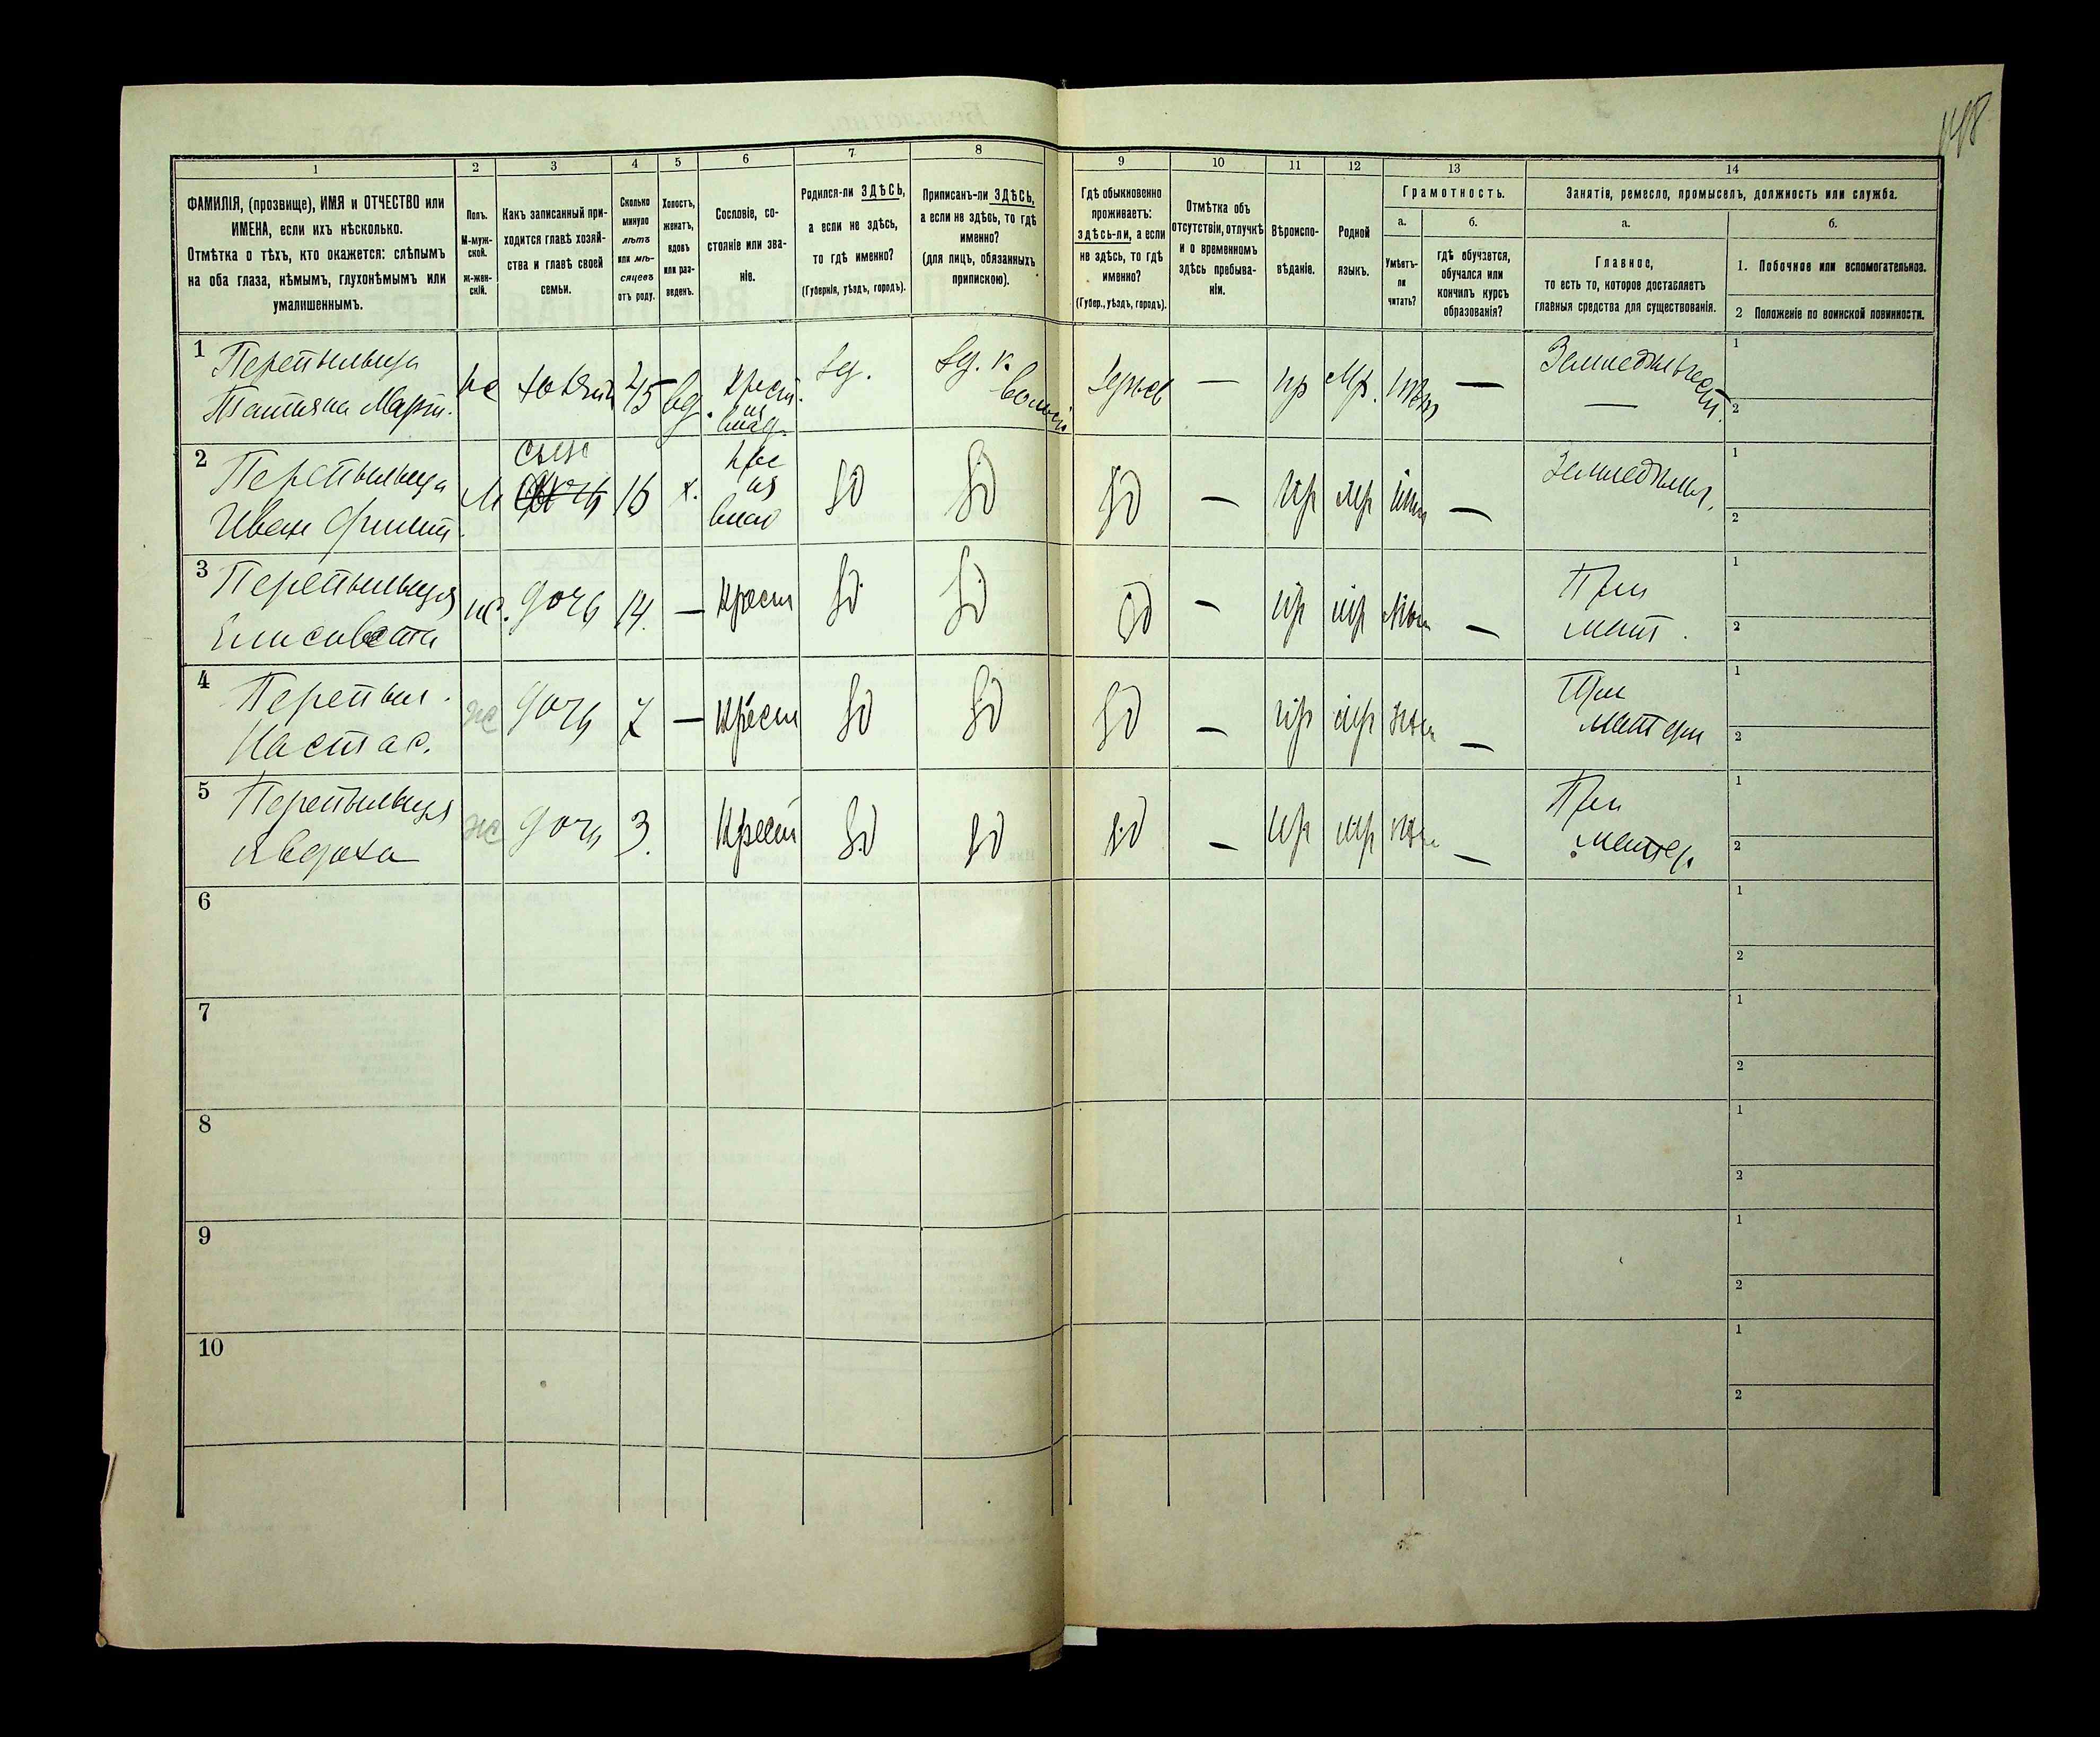 148
1
2
3
4
5
6
7
8
9
10
11
12
13
14
ФАМИЛІЯ, (прозвище), ИМЯ и ОТЧЕСТВО или
ИМЕНА, если ихъ нѣсколько.
Отмѣтка о тѣхъ, кто окажется: слѣпымъ
на оба глаза, нѣмымъ, глухонѣмымъ или
умалишеннымъ.
Полъ.
М-муж-
ской.
Ж-жен-
скій.
Какъ записанный при-
ходится главѣ хозяй-
ства и главѣ своей
семьи.
Сколько
минуло
лѣтъ
или мѣ-
сяцевъ
отъ роду.
Холостъ,
женатъ,
вдовъ
или раз-
веденъ.
Сословіе, со-
стояніе или зва-
ніе.
Родился-ли ЗДѢСЬ,
а если не здѣсь,
то гдѣ именно?
(Губернія, уѣздъ, городъ).
Приписанъ-ли ЗДѢСЬ,
а если не здѣсь, то гдѣ
именно?
(для лицъ, обязанныхъ
припискою).
Гдѣ обыкновенно
проживаетъ:
здѣсь-ли, а если
не здѣсь, то гдѣ
именно?
(Губер., уѣздъ, городъ).
Отмѣтка объ
отсутствіи, отлучкѣ
и о временномъ
здѣсь пребыва-
ніи.
Вѣроиспо-
вѣданіе.
Родной
языкъ.
Грамотность.
а.
Умѣетъ-
ли
читать?
б.
гдѣ обучается,
обучался или
кончилъ курсъ
образованія?
Занятія, ремесло, промыселъ, должность или служба.
а.
Главное,
то есть то, которое доставляетъ
главныя средства для существованія.
б.
1. Побочное или вспомогательное.
2 Положеніе по воинской повинности.
1
Перепылыца
Татьяна Март.
45
вд.
Крест.
из
влад.
Зд.
Зд. к.
волости
—
пр
Мр.
—
1
2
2
Перепылыца
Иван Филип.
М
сын
16
х.
Кре
из
влад
—
пр
мр
—
Земледѣл.
1
2
3
Перепылыця
Елисавета
ж.
дочь
14.
—
Крест
—
пр
мр
—
При
мат.
1
2
4
Перепыл.
Настас.
ж
дочь
7
—
Крест
—
пр
мр
—
При
матери
1
2
5
Перепылыця
Явдоха
ж
дочь
3.
Крест
—
пр
мр
—
При
матер.
1
2
6
1
2
7
1
2
8
1
2
9
1
2
10
1
2